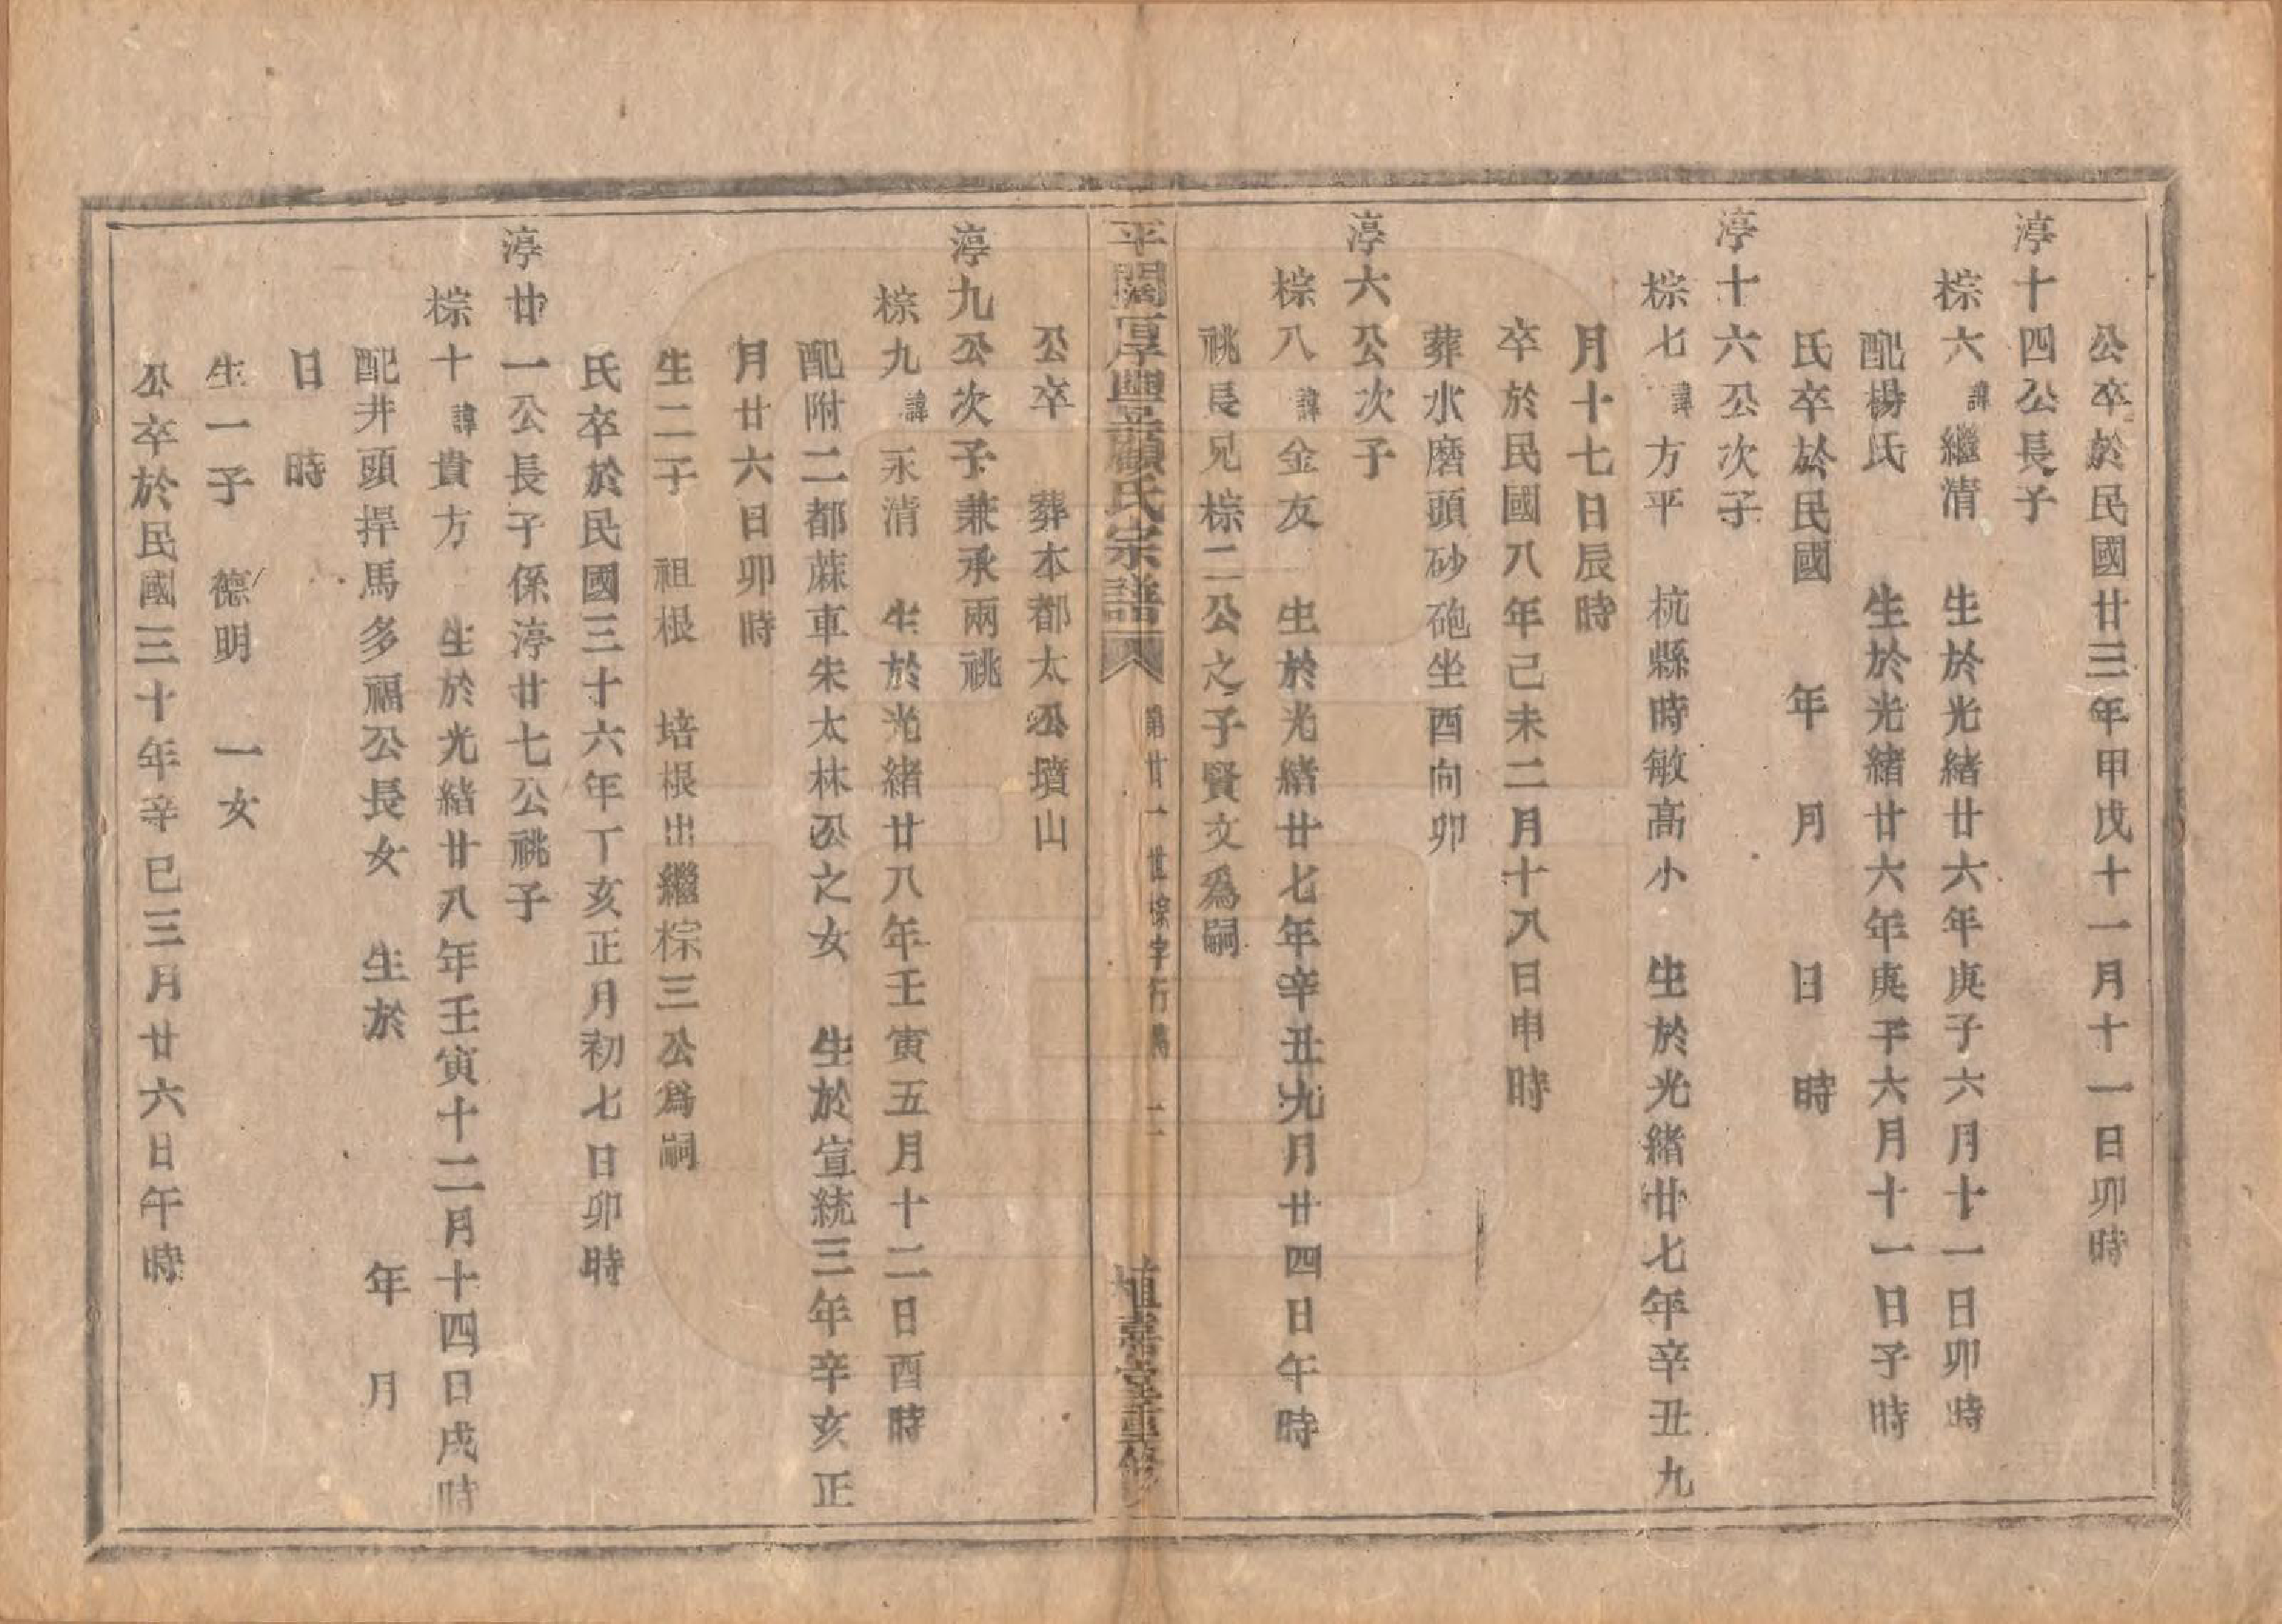 公卒於民國廿三年甲戊十一月十一日卯時
渟十四公長子
棕六諱繼清 生於光緒廿六年庚子六月十一日卯時
配楊氏 生於光緒廿六年庚子六月十一日子時
氏卒於民國 年 月 日 時
渟十六公次子
棕七諱方平 杭縣時敏高小 生於光緒廿七年辛丑九
月十七日辰時
卒於民國八年己未二月十八日申時
葬水磨頭砂砲坐酉向卯
渟六公次子
棕八諱金友 生於光緒廿七年辛丑九月廿四日午時
祧長兄棕二公之子賢文為嗣
平閣厚豐顧氏宗譜 第廿一世棕字行萬 二 植嘉堂重修
公卒 葬本都太公墳山
渟九公次子兼承兩祧
棕九諱永清 生於光緒廿八年壬寅五月十二日酉時
配附二都蔴車朱太林公之女 生於宣統三年辛亥正
月廿六日卯時
生二子 祖根 培根出繼棕三公為嗣
氏卒於民國三十六年丁亥正月初七日卯時
渟廿一公長子係渟廿七公祧子
棕十諱貴方 生於光緒廿八年壬寅十二月十四日戌時
配井頭捍馬多福公長女 生於 年 月
日 時
生一子 德明 一女
公卒於民國三十年辛巳三月廿六日午時